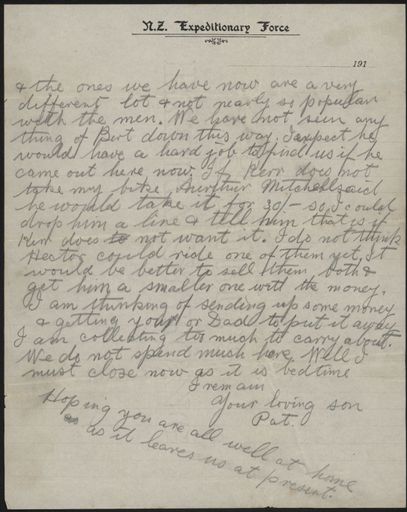 N.Z. Expeditionary Force
191
& the ones we have now are a very
different lot & not nearly so popular
with the men. We have not seen any
thing of Bert down this way. I expect he
would have a hard job to find us if he
came out here now. If Kerr does not
take my bike, Aurthur Mitchell said
he would take it for 30/- so I could
drop him a line & tell him that is if
Kerr does to not want it. I do not think
Hector could ride one of them yet, it
would be better to sell them both &
get him a smaller one with the money.
I am thinking of sending up some money
& getting you or Dad to put it away
I am collecting too much to carry about.
We do not spend much here. Well I
must close now as it is bedtime
I remain
Your loving son
Pat.
Hoping you are all well at home
as it leaves us at present.